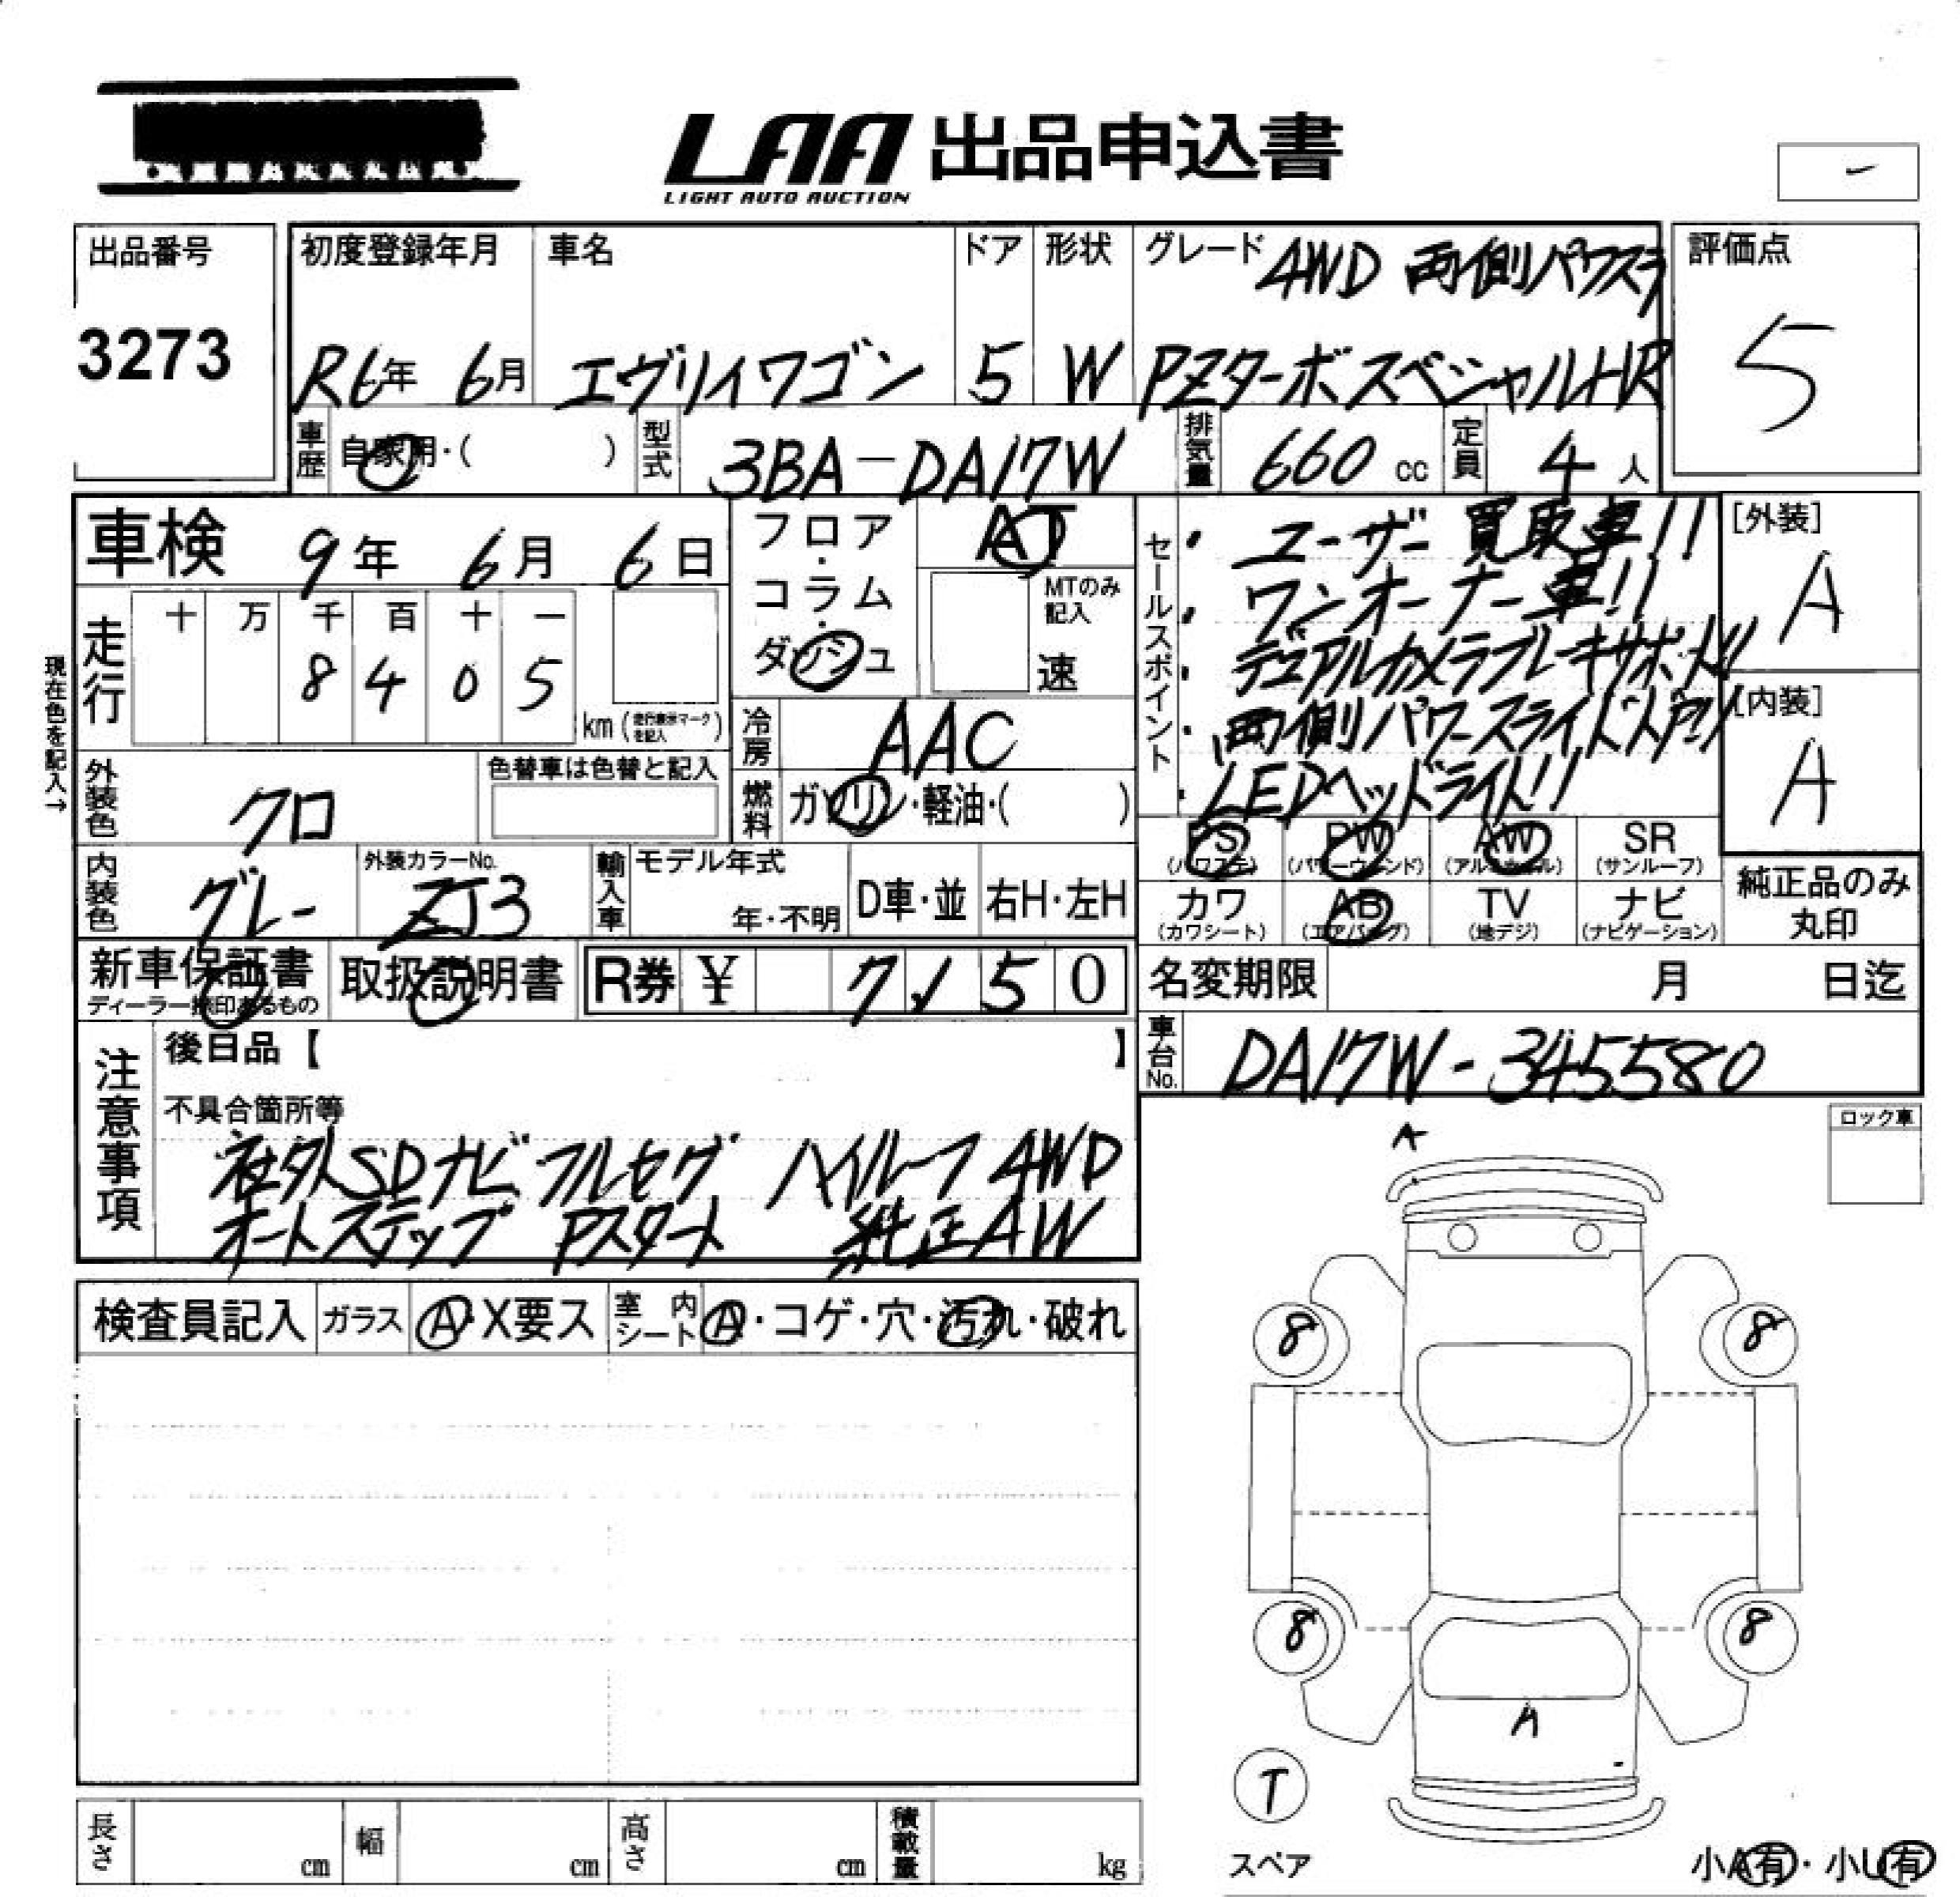 LAA 出品申込書
LIGHT AUTO AUCTION
出品番号
3273
初度登録年月
R6年 6月
車名
エヴリイワゴン
ドア
5
形状
W
グレード 4WD 両側パワスラ
PZターボスペシャルHR
評価点
5
車歴 自家用・( )
型式 3BA-DA17W
排気量 660 cc
定員 4 人
車検 9年 6月 6日
フロア・コラム・ダッシュ
AT
MTのみ記入
速
走行
十 万 千 百 十 一
8 4 0 5
km (走行表示マークを記入)
現在色を記入→
冷房 AAC
燃料 ガソリン・軽油・( )
外装色 クロ
色替車は色替と記入
内装色 グレー
外装カラーNo. ZJ3
輸入車 モデル年式
年・不明
D車・並
右H・左H
セールスポイント
・ユーザー買取車!!
・ワンオーナー車!!
・デュアルカメラブレーキサポート!!
・両側パワースライドドア!!
・LEDヘッドライト!!
[外装]
A
[内装]
A
PS (パワステ) PW (パワーウィンド) AW (アルミホイル) SR (サンルーフ)
カワ (カワシート) AB (エアバッグ) TV (地デジ) ナビ (ナビゲーション)
純正品のみ丸印
新車保証書
ディーラー捺印あるもの
取扱説明書
R券 ¥ 7,150
名変期限 月 日迄
車台No. DA17W-345580
注意事項
後日品【 】
不具合箇所等
社外SDナビ フルセグ ハイルーフ 4WD
オートステップ Pスタート 純正AW
ロック車
A
検査員記入 ガラス A・X要ス 室内シート A・コゲ・穴・汚れ・破れ
8 8
8 8
A
T
スペア
小A有・小U有
長さ cm 幅 cm 高さ cm 積載量 kg